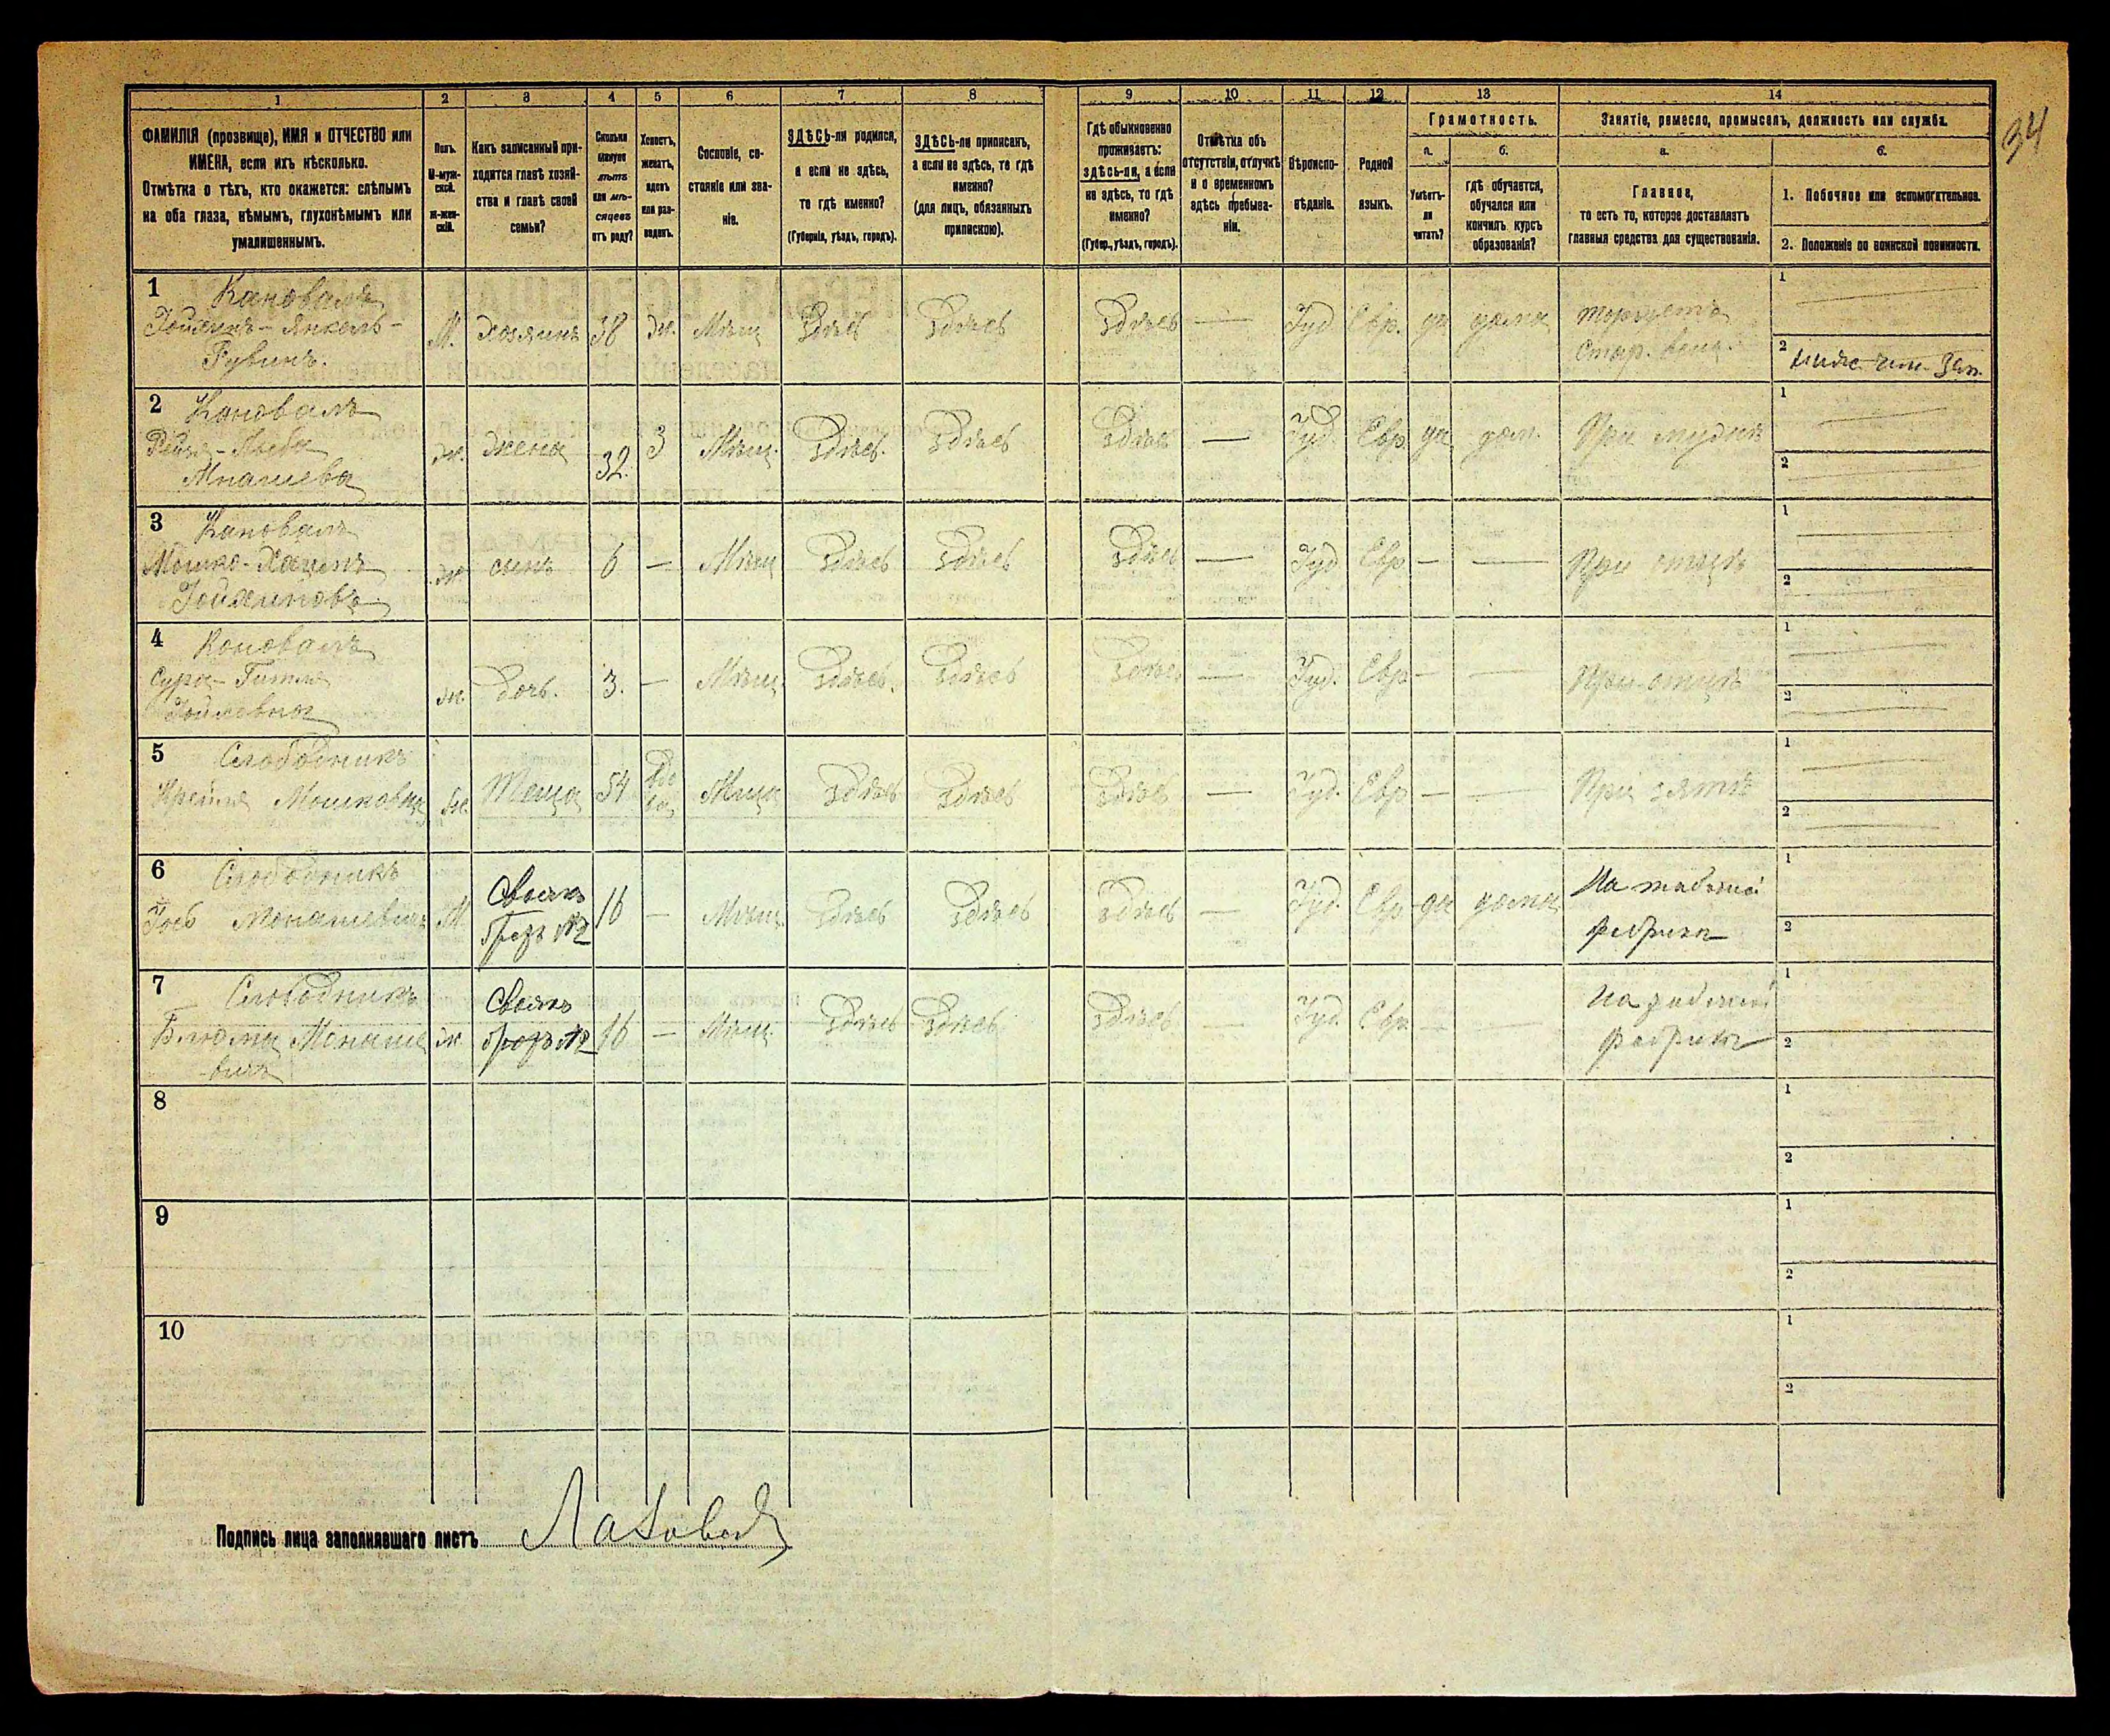 34
1 2 3 4 5 6 7 8 9 10 11 12 13 14
ФАМИЛІЯ (прозвище), ИМЯ и ОТЧЕСТВО или
ИМЕНА, если ихъ нѣсколько.
Отмѣтка о тѣхъ, кто окажется: слѣпымъ
на оба глаза, нѣмымъ, глухонѣмымъ или
умалишеннымъ.
Полъ.
М-муж-
ской.
Ж-жен-
скій.
Какъ записанный при-
ходится главѣ хозяй-
ства и главѣ своей
семьи?
Сколько
минуло
лѣтъ
или мѣ-
сяцевъ
отъ роду?
Холостъ,
женатъ,
вдовъ
или раз-
веденъ.
Сословіе, со-
стояніе или зва-
ніе.
ЗДѢСЬ-ли родился,
а если не здѣсь,
то гдѣ именно?
(Губернія, уѣздъ, городъ).
ЗДѢСЬ-ли приписанъ,
а если не здѣсь, то гдѣ
именно?
(для лицъ, обязанныхъ
припискою).
Гдѣ обыкновенно
проживаетъ:
здѣсь-ли, а если
не здѣсь, то гдѣ
именно?
(Губер., уѣздъ, городъ).
Отмѣтка объ
отсутствіи, отлучкѣ
и о временномъ
здѣсь пребыва-
ніи.
Вѣроиспо-
вѣданіе.
Родной
языкъ.
Грамотность.
а.
Умѣетъ-
ли
читать?
б.
гдѣ обучается,
обучался или
кончилъ курсъ
образованія?
Занятіе, ремесло, промыселъ, должность или служба.
а.
Главное,
то есть то, которое доставляетъ
главныя средства для существованія.
б.
1. Побочное или вспомогательное.
2. Положеніе по воинской повинности.
1 Кановалъ
Янкель-
Рувинъ.
М. хозяинъ 38 ж. Мѣщ Здѣсь Здѣсь Здѣсь — Іуд Евр. да дома торгуетъ
Стар. вещ.
1
2
2 Кановалъ
Рейзя-
ж. жена 32. З Мѣщ. Здѣсь. Здѣсь Здѣсь — Іуд. Евр. да дом. При мужѣ
1
2
3 Кановалъ
Мошко-
ж сынъ 6 — Мѣщ Здѣсь Здѣсь Здѣсь — Іуд Евр — — При отцѣ
1
2
4 Коновалъ
Сура-Гитля
ж. дочь. 3. — Мѣщ. Здѣсь. Здѣсь Здѣсь — Іуд. Евр — — При отцѣ
1
2
5 Слободникъ
Крейня Мошковна ж. Теща 54 вдова Мѣщ Здѣсь Здѣсь Здѣсь — Іуд. Евр — — При зятѣ
1
2
6 Слободникъ
М Своякъ
братъ №2 16 — Мѣщ. Здѣсь Здѣсь Здѣсь — Іуд. Евр да дома На табачной
фабрикѣ
1
2
7 Слободникъ
Блюма ж Своякъ
№2 16 — Мѣщ. Здѣсь Здѣсь Здѣсь — Іуд. Евр. — — На
фабрикѣ
1
2
8
1
2
9
1
2
10
1
2
Подпись лица заполнявшаго листъ